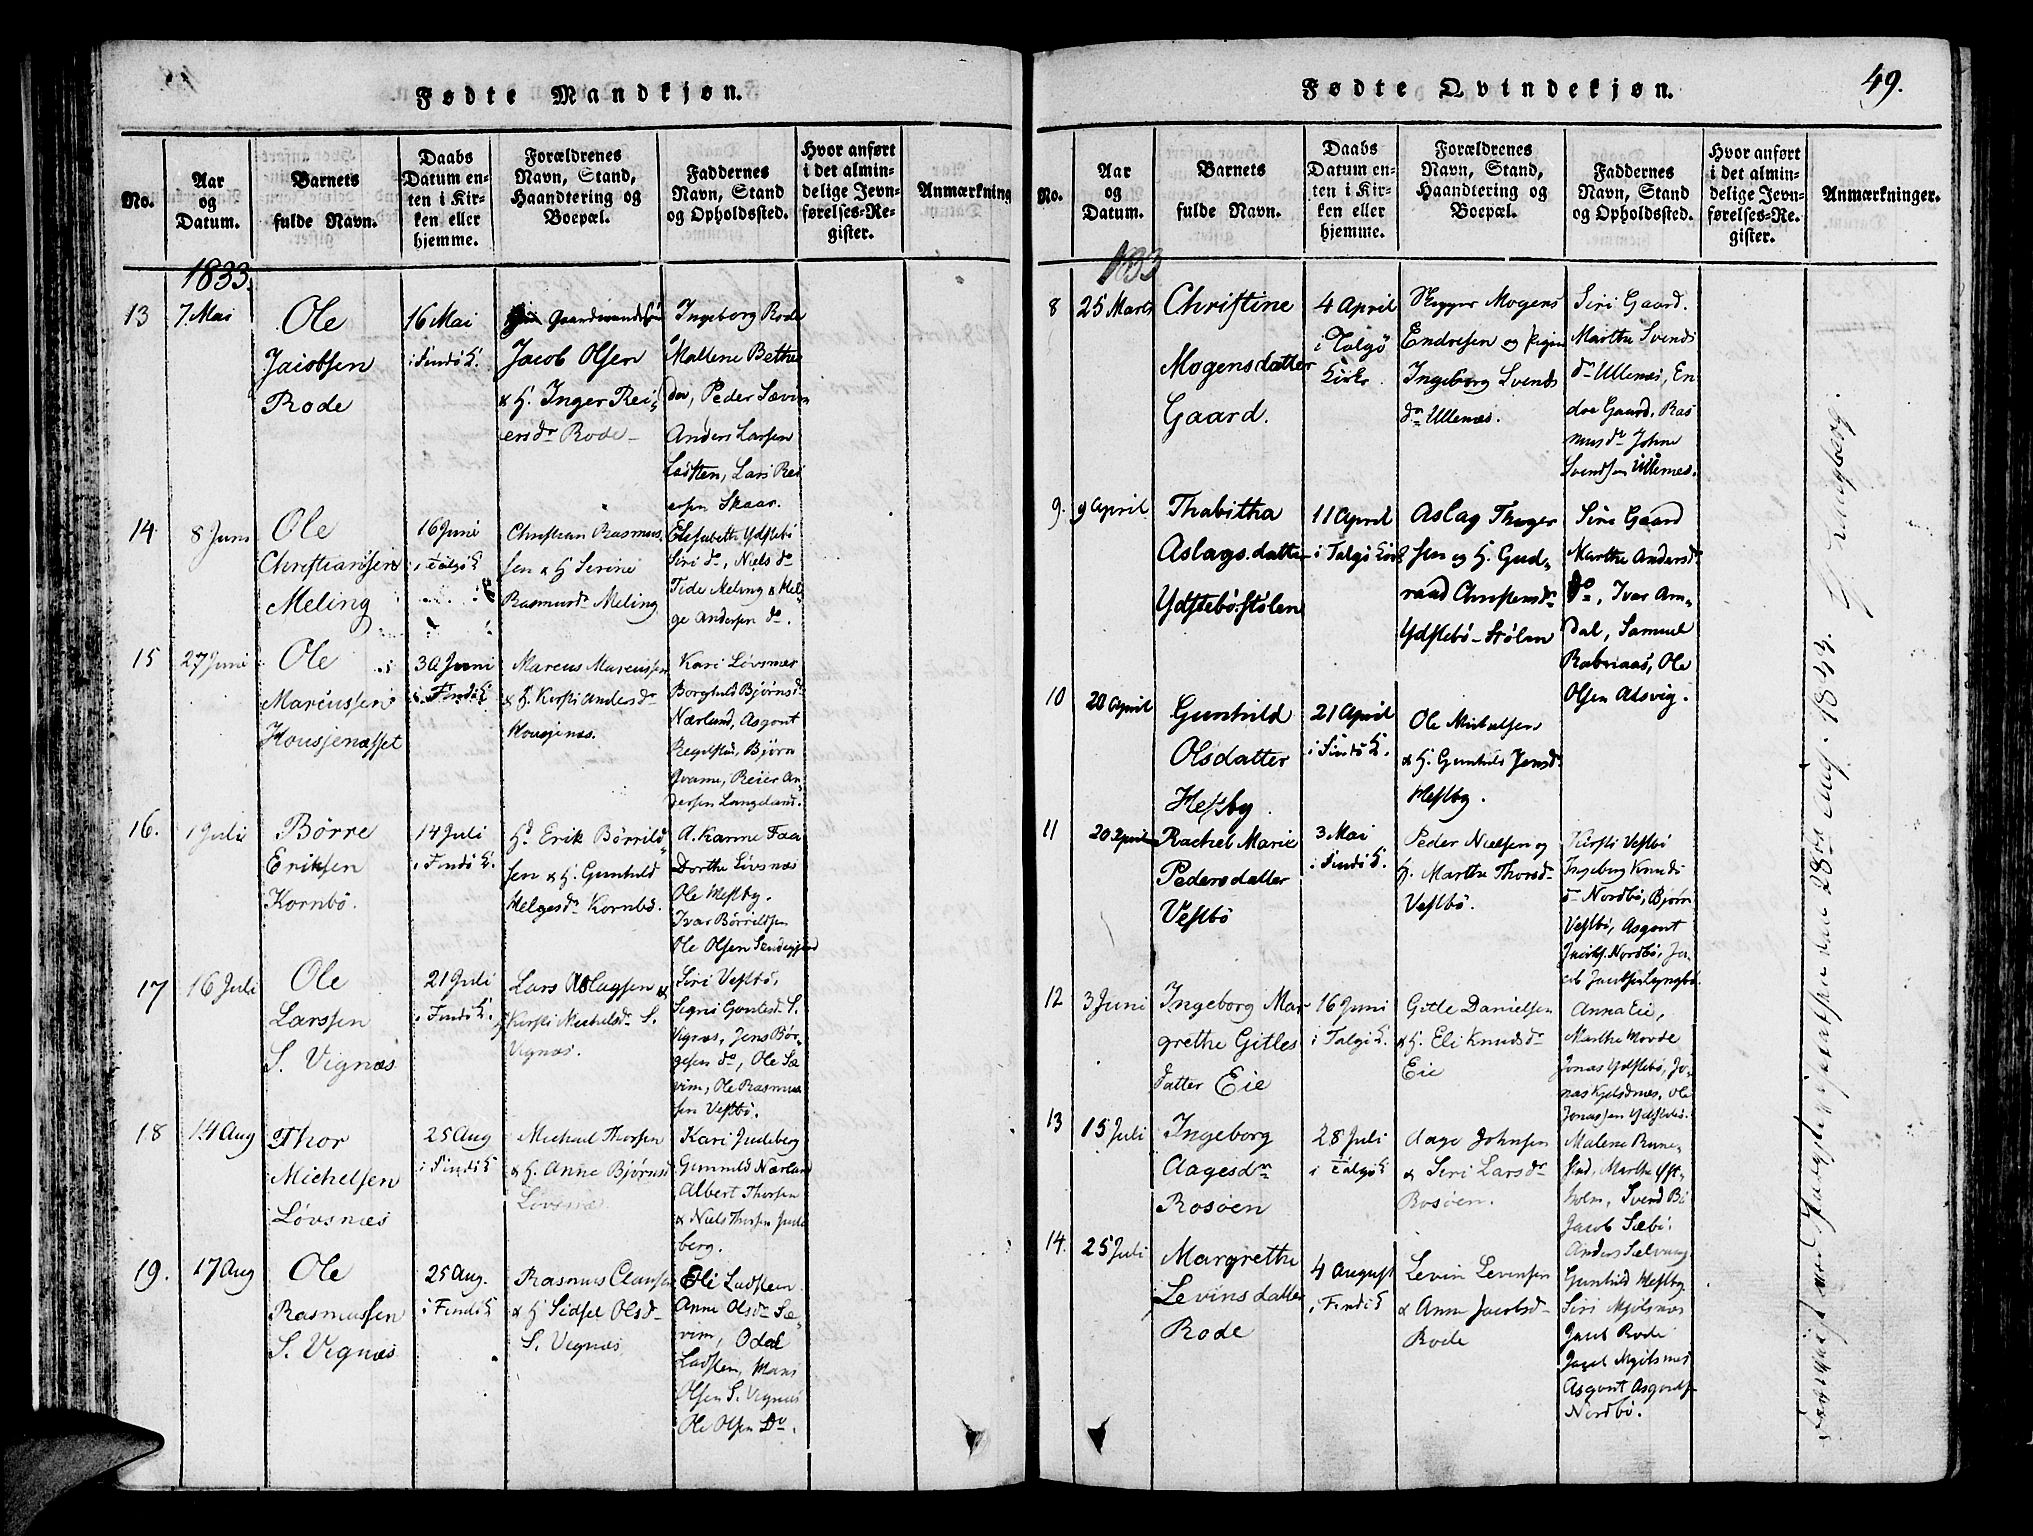 Fødte Mandkjøn.
No.
Aar
og
Datum.
Barnets
fulde Navn.
Daabs
Datum en-
ten i Kir-
ken eller
hjemme.
Forældrenes
Navn, Stand,
Haandtering og
Boepæl.
Faddernes
Navn, Stand
og Opholdssted.
Hvor anført
i det almin-
delige Jevn-
førelses-Re-
gister.
Anmærkning
1833.
13
7 Mai
Ole
Jacobsen
Rode
16 Mai
i Findö K.
Gaardmand
Jacob Olsen
& H. Inger Rei-
ersdr Rode
Ingeborg Rode
Mallene Bethe
do, Peder Sævim
Anders Larsen
Ladsten, Lars Rei
ersen Skaar.
14
8 Juni
Ole
Christiansen
Meling
16 Juni
i Talgö K
Christian Rasmus-
sen & H Serine
Rasmusdr Meling
Elisabeth Ydstebö
Siri do, Niels do
Tide Meling & Hel-
ge Andersen do.
15
27 Juni
Ole
Marcussen
Housjenæsset
30 Juni
i Findö K
Marcus Marcussen
& H. Kirsti Andersdr
Housjenæs.
Kari Lövsnæs
Borghild Bjørnsdr
Nærland, Asgout
Regelstad, Bjørn
Qvame, Reier An-
dersen Langeland.
16.
1 Juli
Börre
Eriksen
Kornbö.
14 Juli
i Findö K.
Hd Erik Börrild-
sen & H. Gunhild
Helgesdr Kornbö.
A. Karine Faa
Dorthe Lövsnæs
Ole Hestby.
Ivar Börrildsen
Ole Olsen
17
16 Juli
Ole
Larssen
S. Vignæs
21 Juli
i Findö K.
Lars Aslagsen &
H Kirsti Michelsdr S.
Vignæs.
Siri Vestbö,
Segrie Gautesdr S.
Vignæs, Jens Bör-
gesen do, Ole Sæ-
vim, Ole Rasmus
sen Vestbö.
18
14 Aug
Thor
Michelsen
Lövsnæs
25 Aug
i Findö K
Michael Thorsen
& H. Anne Bjørnsd
Lövsnæs
Kari Judeberg
Gunnild Nærland
Albert Thorsen
& Niels Thorsen Jude
berg.
19.
17 Aug
Ole
Rasmussen
S. Vignæs
25 Aug.
i Findö K
Rasmus Clausen
& H Sidsel Olsd-
S. Vignæs
Eli Ladsten
Anne Olsdr Sæ-
vim, Odd
Ladsten, Mons
Olsen S. Vignæs
Ole Olsen Do.
Fødte Qvindekjøn.
49.
No.
Aar
og
Datum.
Barnets
fulde Navn.
Daabs
Datum en-
ten i Kir-
ken eller
hjemme.
Forældrenes
Navn, Stand,
Haandtering og
Boepæl.
Faddernes
Navn, Stand
og Opholdssted.
Hvor anført
i det almin-
delige Jevn-
førelses-Re-
gister.
Anmærkninger.
1833
8
25 Marts
Christine
Mogensdatter
Gaard.
4 April
i Talgö
Kirke
Mogens
Endresen og Pigen
Ingeborg Svends
dr Ullenæs.
Siri Gaard.
Marthe Svends
dr Ullenæs, En
dre Gaard, Ras
mus do Johne
Svendsen Ullenæs.
9.
9 April
Thabitha
Aslagsdatter
Ydstebö-stölen
11 April
i Talgö Kirk
Aslag Thyger
sen og H. Gud-
raad Christensdr
Ydstebö-Stölen
Siri Gaard
Marthe Andersdr
do, Ivar Am-
dal, Samuel
Rabnaas, Ole
Olsen Alsvig.
10
20 April
Gunhild
Olsdatter
Hestby
21 April
i Findö K.
Ole Michelsen
& H. Gunhild Jensdr
Hestby.
11
20 April
Rachel Marie
Pedersdatter
Vestbö
3 Mai
i Findö K.
Peder Nielsen og
H. Marthe Thorsdr
Vestbö.
Kirsti Vestbö
Ingeborg Knuds
dr Nordbö, Bjørn
Vestbö, Asgout
Jacobs. Nordbö, Ja-
cob Jacobsen Lyngbö
12
3 Juni
Ingeborg Mar-
grethe Gitles
datter Eie
16 Juni
i Talgö K.
Gitle Danielsen
& H. Eli Knudsdr
Eie
Anna Eie,
Marthe Hovde
Jonas Ydstebö, Jo-
nas Kjelsdnæs, Ole
Jonassen Ydstebö.
13
15 Juli
Ingeborg
Aagesdr
Rosöen
28 Juli
i Talgö K
Aage Johnsen
& Siri Larsdr
Rosöen.
Malene Rune-
stad, Marthe Yst-
holm, Svend Bö
Jacob Sæbö.
14.
25 Juli
Margrethe
Levinsdatter
Rode
4 August
i Findö K
Levin Levinsen
& Anne Jacobsdr
Rode
Anders Sælvaag
Gunhild Hestby
Siri Mjölsnæs
Jacob Rode
Jacob Mjölsnæs
Asgout Asgouts-
Nordbö.
Fremvist ved Provstevisitatsen den 28de Aug. 1833.